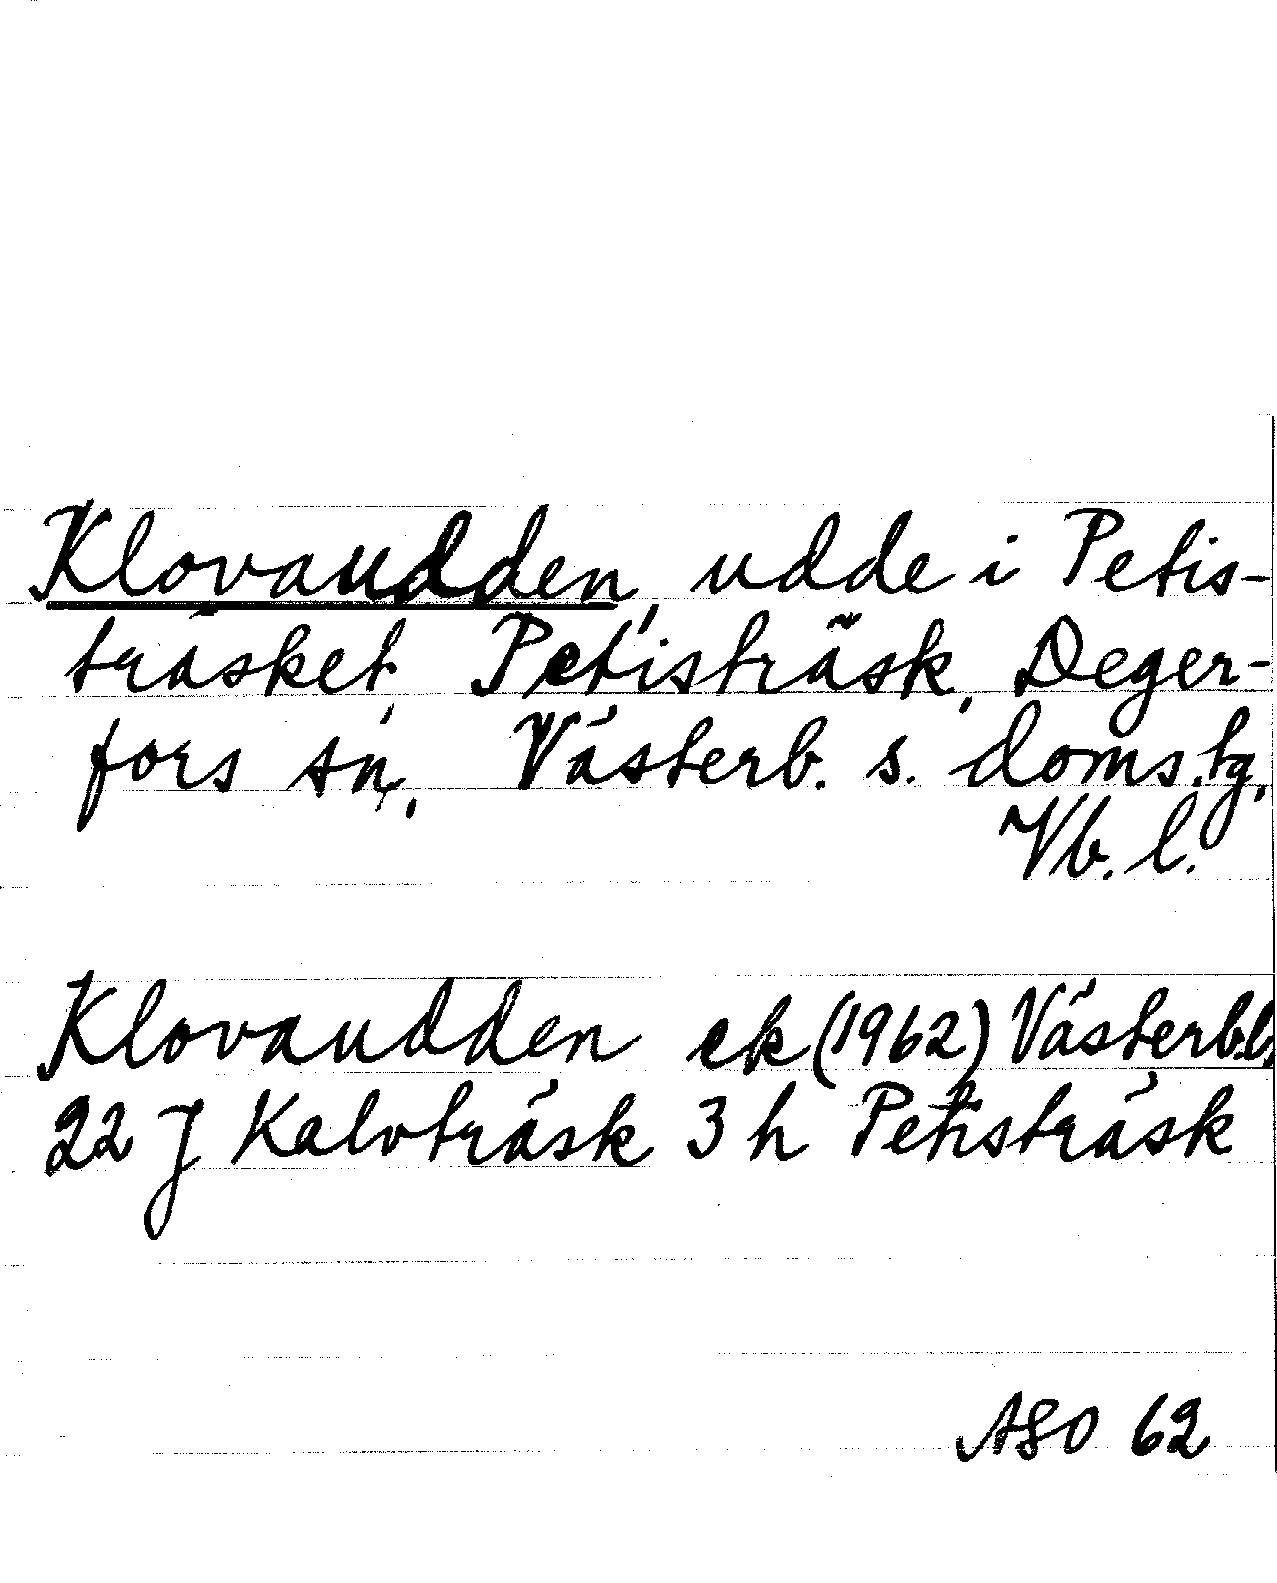 Klovaudden, udde i Petis-
träsket, Petisträsk, Deger-
fors sn, Västerb. s. doms.tg,
Vb. l.
Klovaudden ek (1962) Västerb.l,
22 J Kalvträsk 3 h Petisträsk
ASO 62